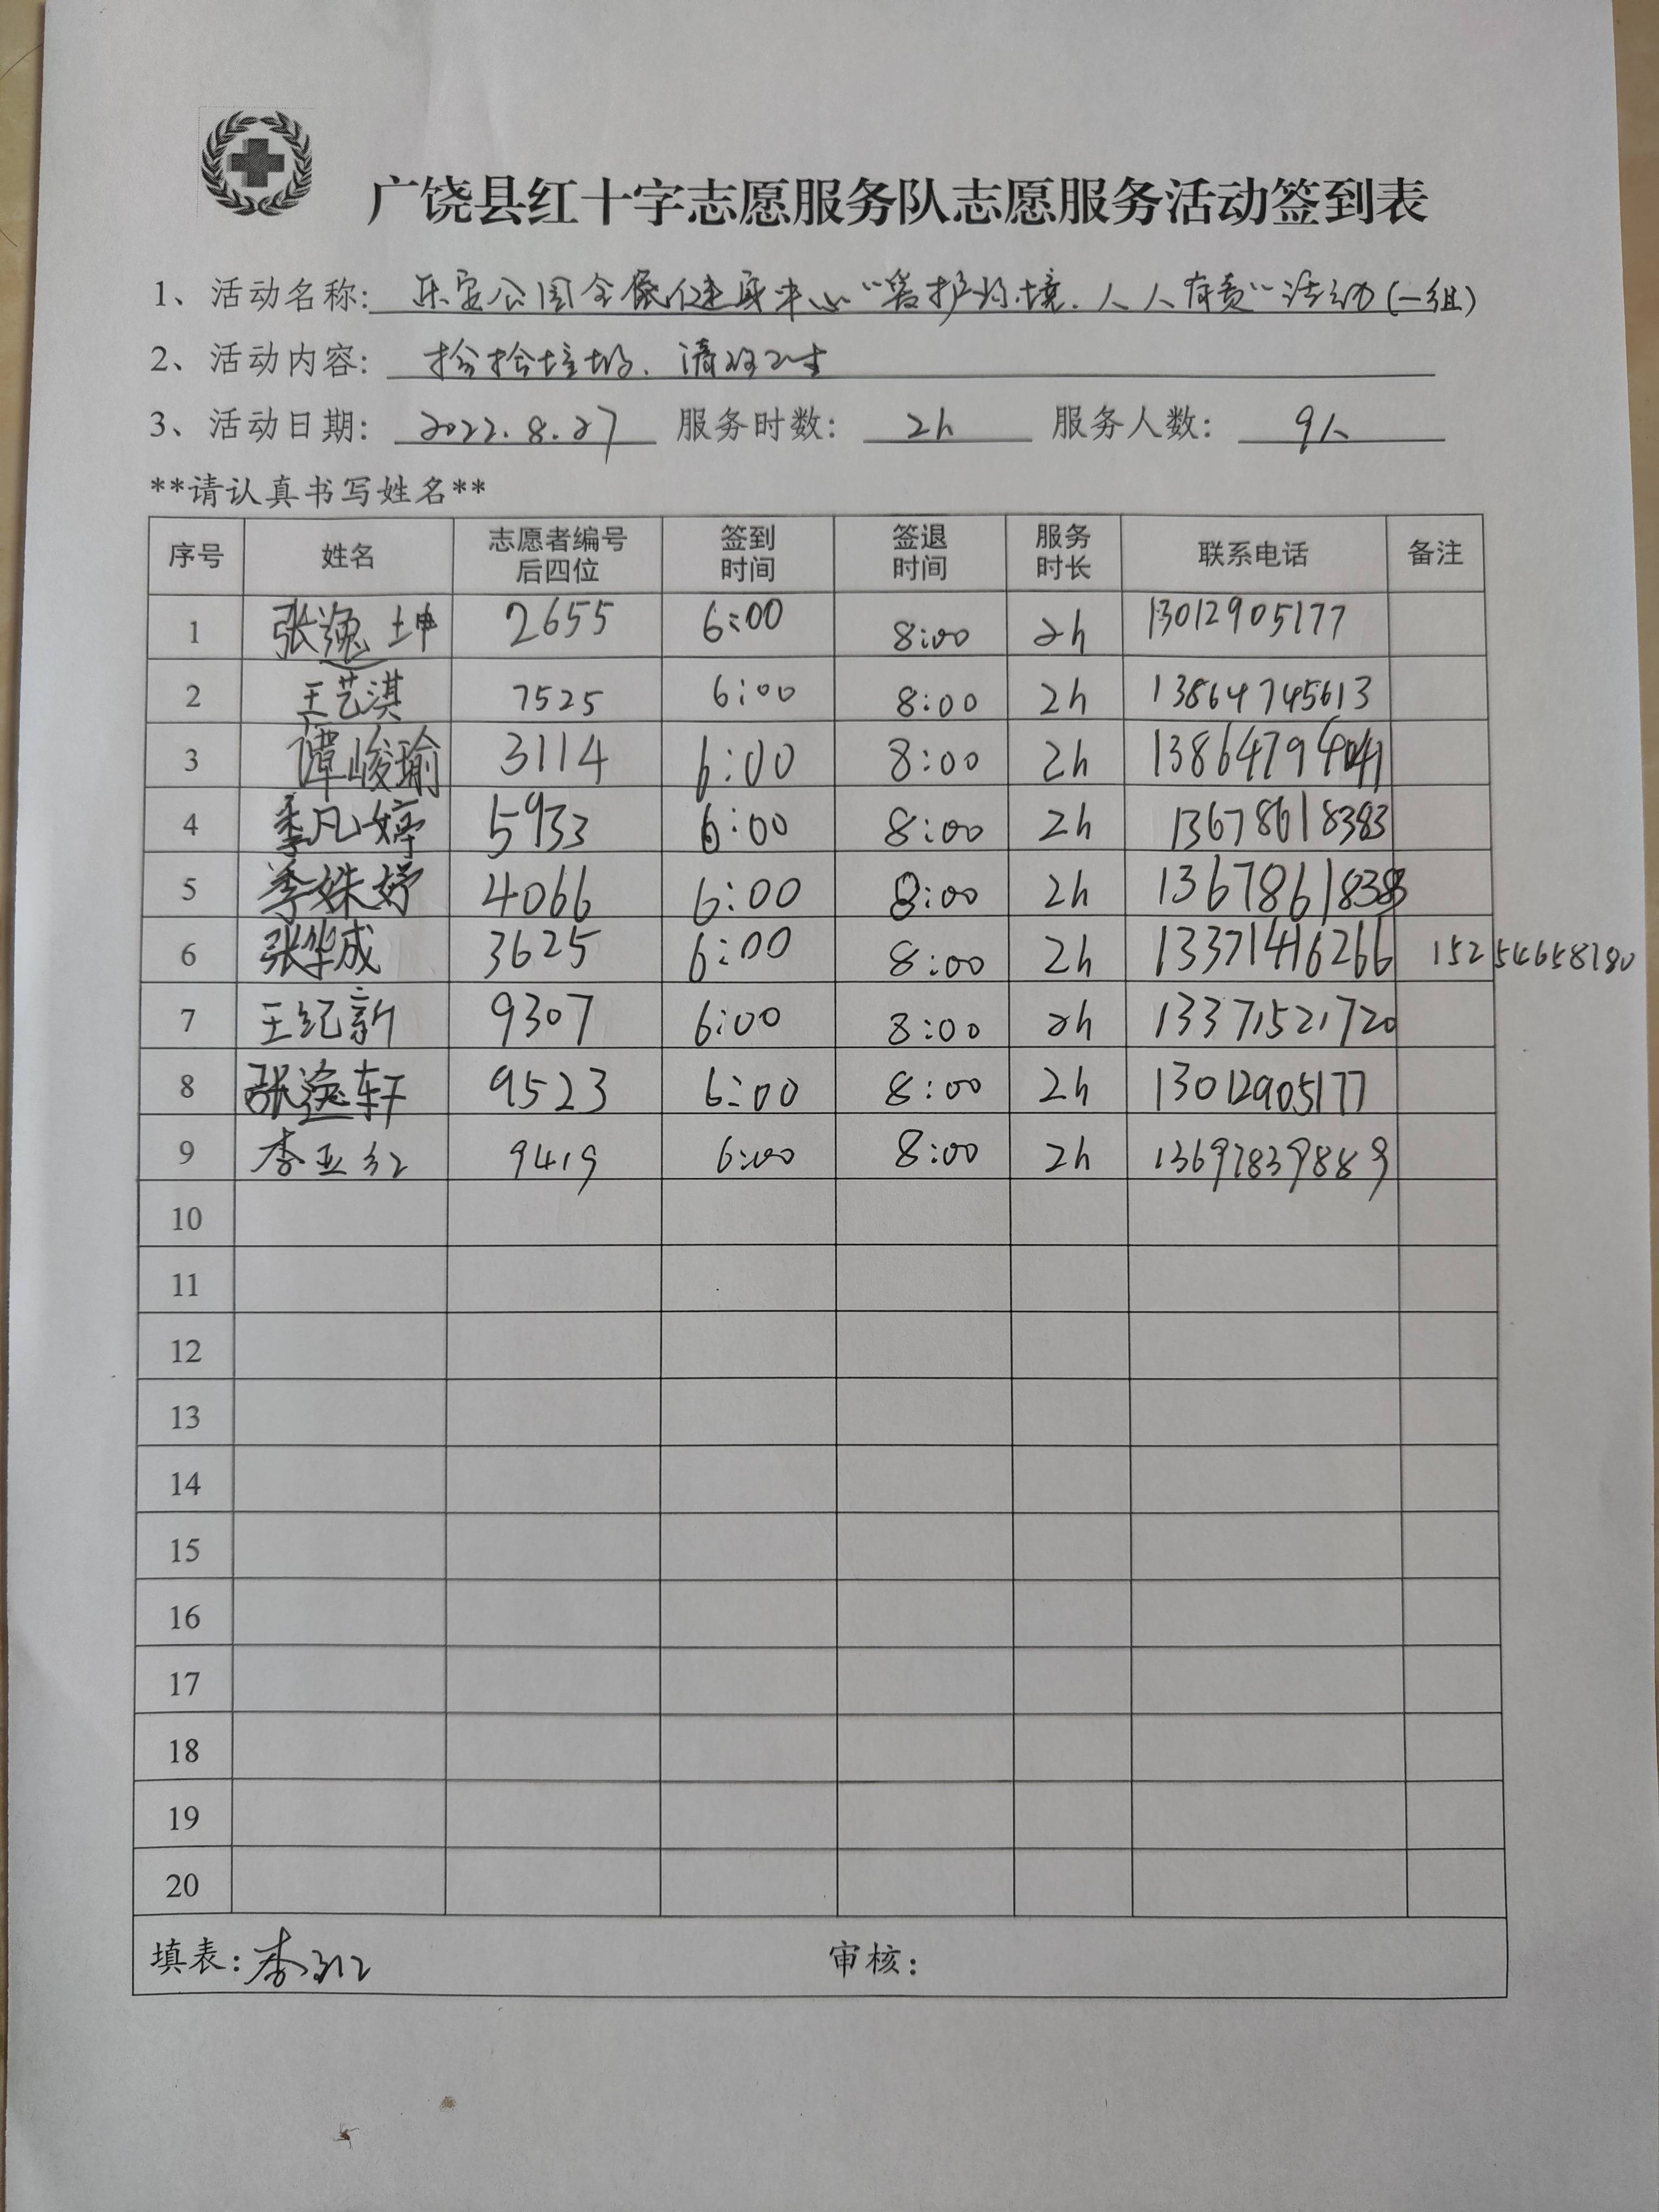 广饶县红十字志愿服务队志愿服务活动签到表
1、活动名称: 乐安公园全民健身中心“爱护环境.人人有责”活动(一组)
2、活动内容: 捡拾垃圾.清理卫生
3、活动日期: 2022.8.27 服务时数: 2h 服务人数: 9人
**请认真书写姓名**
序号 姓名 志愿者编号后四位 签到时间 签退时间 服务时长 联系电话 备注
1 张逸坤 2655 6:00 8:00 2h 13012905177
2 王艺淇 7525 6:00 8:00 2h 13864745613
3 谭峻瑜 3114 6:00 8:00 2h 13864794041
4 季凡婷 5933 6:00 8:00 2h 13678618383
5 季姝妤 4066 6:00 8:00 2h 13678618383
6 张华成 3625 6:00 8:00 2h 13371416266 15254658780
7 王纪新 9307 6:00 8:00 2h 13371521720
8 张逸轩 9523 6:00 8:00 2h 13012905177
9 李亚红 9419 6:00 8:00 2h 13697839889
10
11
12
13
14
15
16
17
18
19
20
填表: 李 审核: